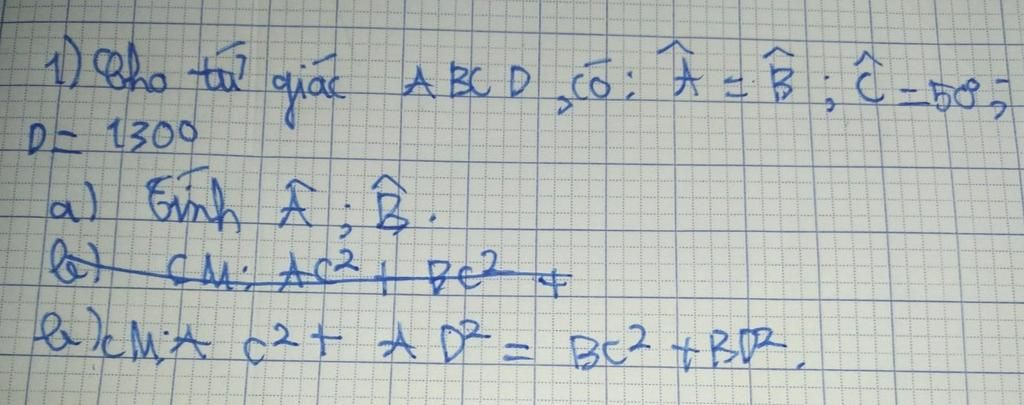 1) Cho tứ giác ABCD, có: Â = B̂ ; Ĉ = 50°;
D = 130°
a) Tính Â ; B̂ .
b) CM: AC² + BC² +
b) CM: AC² + AD² = BC² + BD².